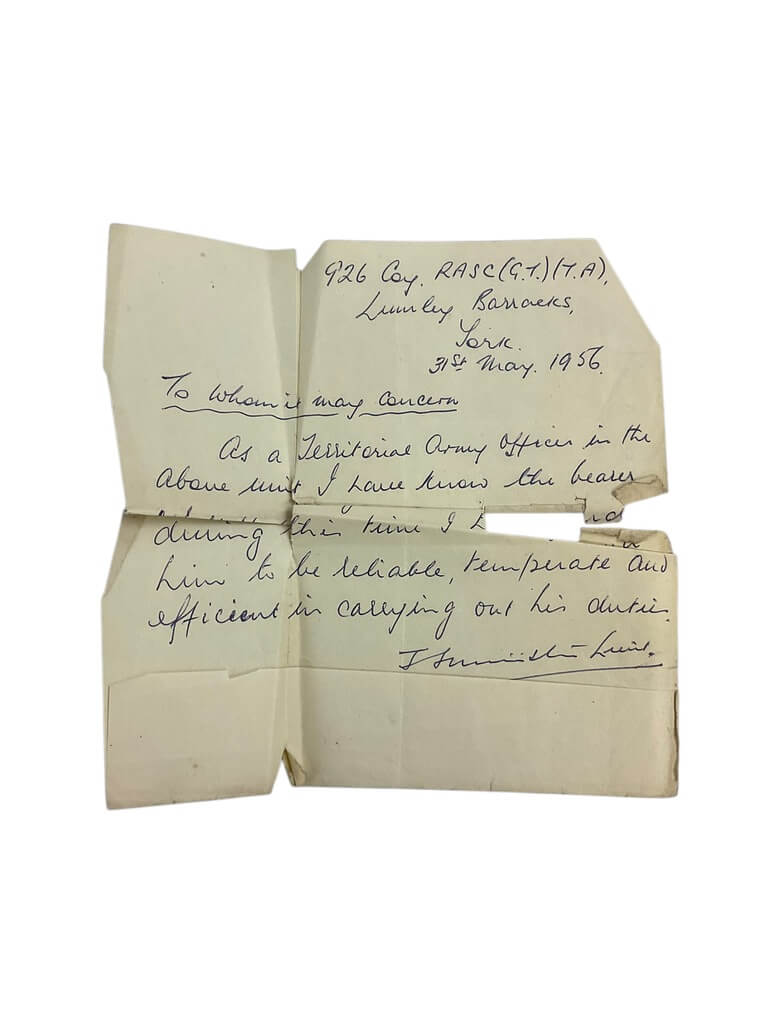 926 Coy. RASC (G.T.) (T.A),
Lumley Barracks,
York.
31st May. 1956.
To Whom it may concern
As a Territorial Army Officer in the
above unit I have know the bearer
during this time I
him to be reliable, temperate and
efficient in carrying out his duties.
Lieut.